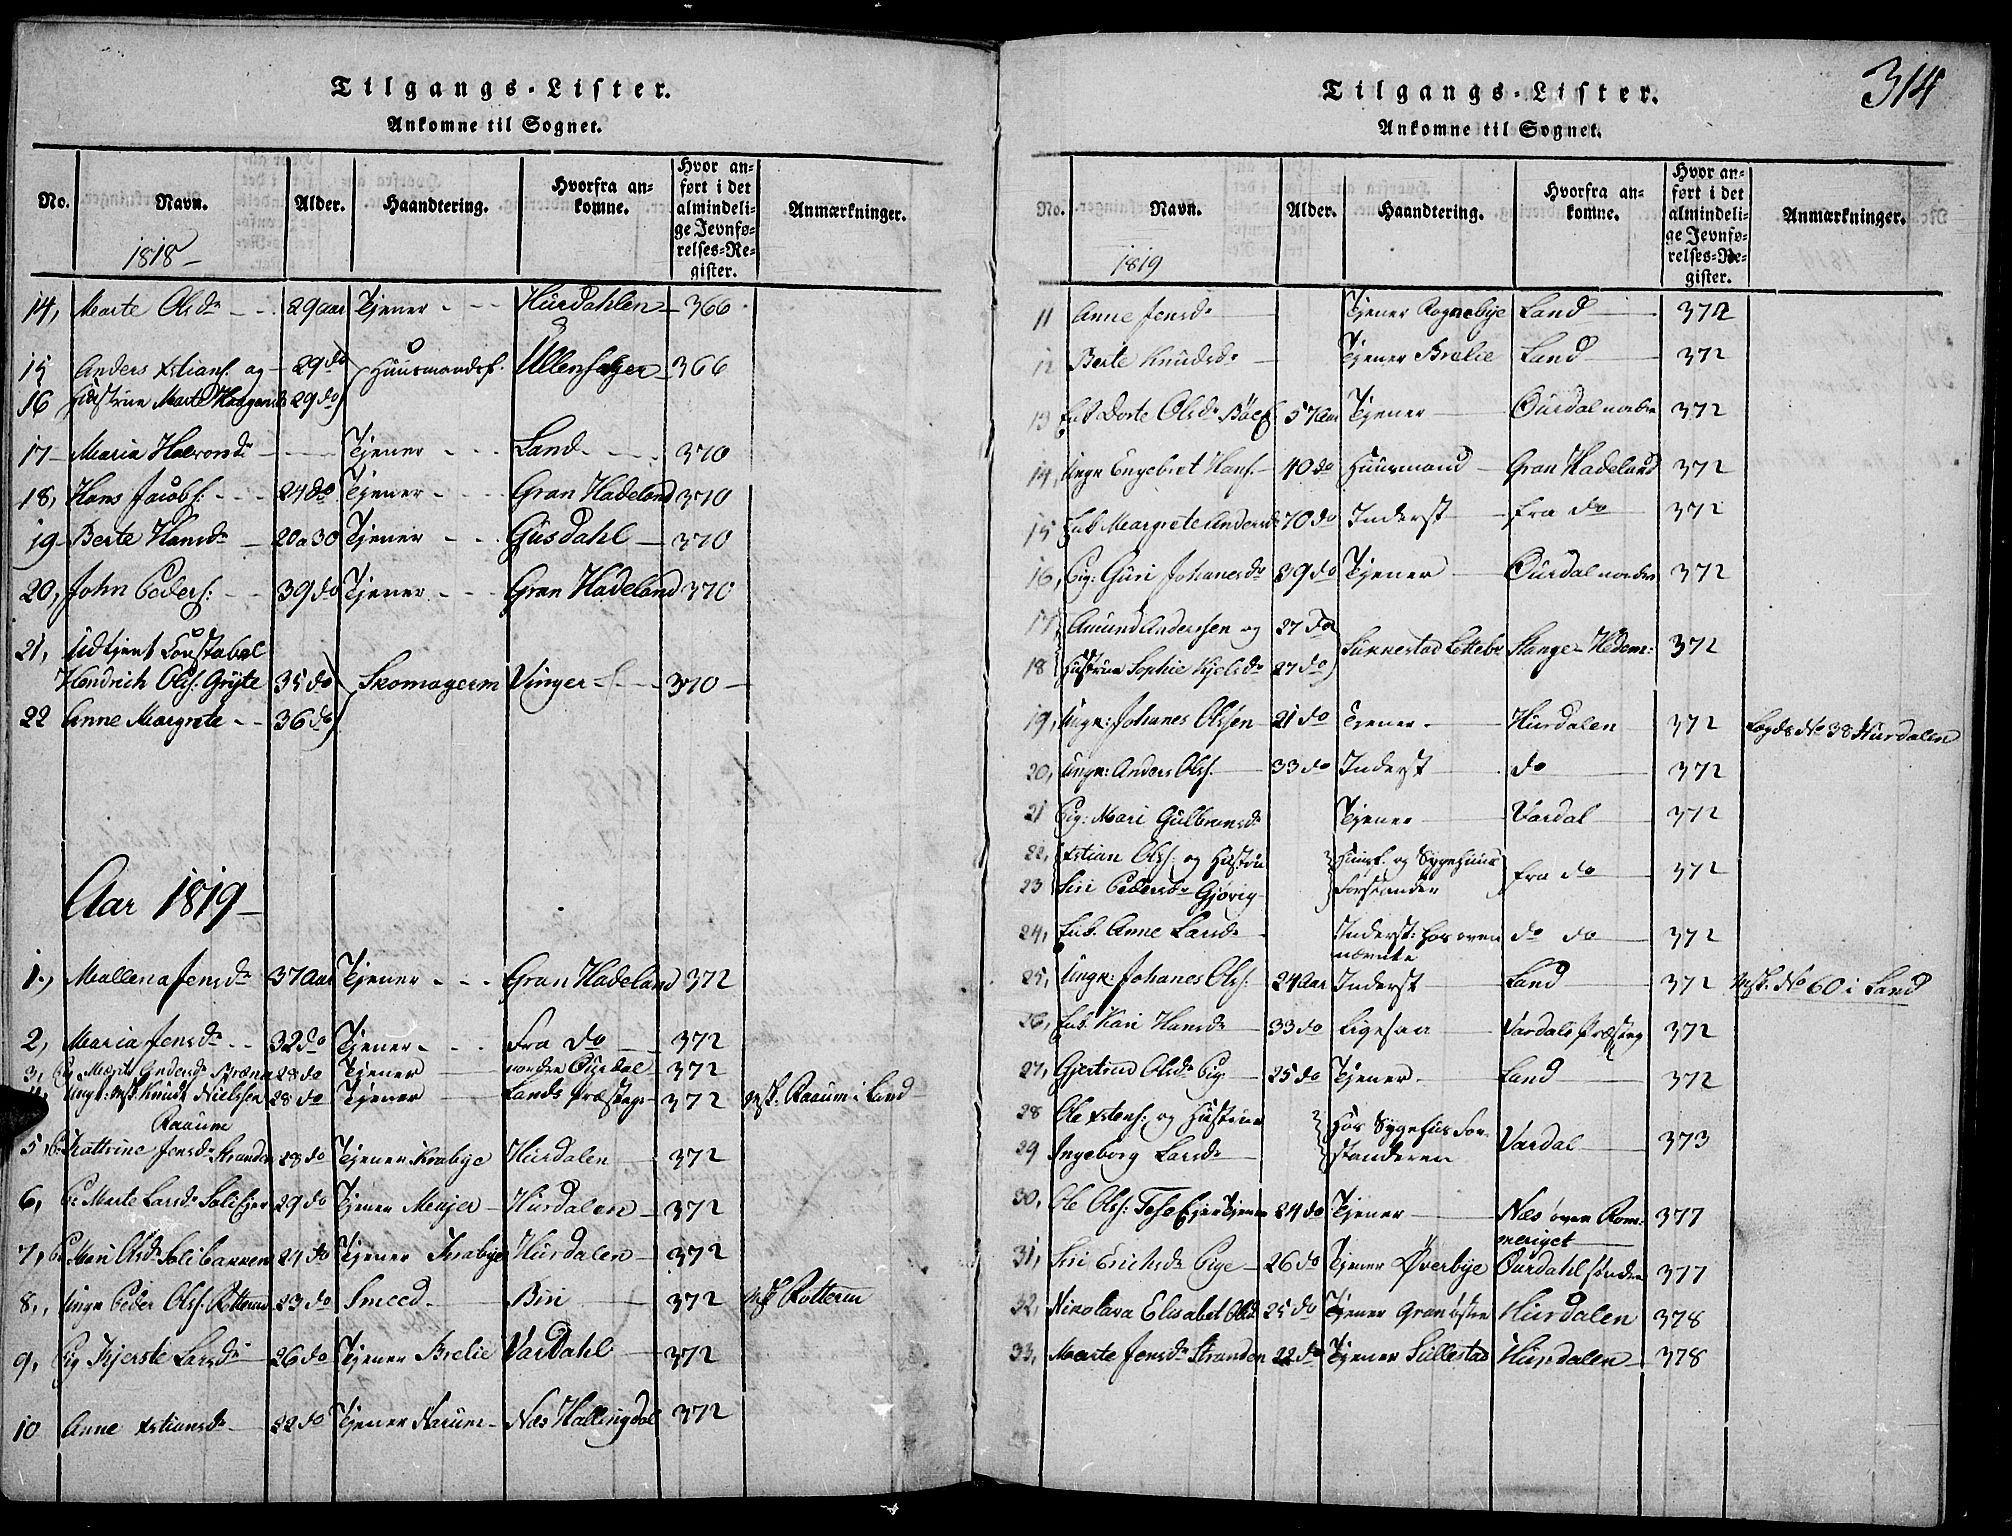 Tilgangs-Lister.
Ankomne til Sognet.
No. Navn. Alder. Haandtering. Hvorfra ankomne. Hvor anført i det almindelige Jevnførelses-Register. Anmærkninger.
1818
14, Marte Olsdr 29 aar Tjener Hurdahlen 366
15 Anders Xstians: og 29 do Huusmandsf. Ullensager 366
16 Hustrue Marte Haagensd 29 do
17 Maria Halvorsdr Tjener Land 370
18, Hans Jacobs: 24 do Tjener Gran Hadeland 370
19 Berte Hansdr 20a30 Tjener Gusdahl 370
20, John Peders: 39 do Tjener Gran Hadeland 370
21, Udtjent Constabel
Hendrich Ols: Gryte 35 do Skomagerm Vinger 370
22 Anne Margrete 36 do
Aar 1819
1, Mallena Jensdr 37 Aar Tjener Gran Hadeland 372
2, Maria Jensdr 32 do Tjener Fra do 372
3, 28 do Tjener nordre Ourdal 372
4, Ungk: Knud Nielssen 28 do Tjener Lands Præsteg 372 Raaum i Land
Raaum
5, Kattrine Jensdr Stranden 23 do Tjener Kraby e Hurdalen 372
6, Marte Larsdr 29 do Tjener Hurdalen 372
7, Mari Olsdr 24 do Tjener Krabye Hurdalen 372
8, Ungk Peder Ols: Rotterud 23 do Smeed Biri 372 Rotterud
9, Pig Kjerste Larsdr 26 do Tjener Brelie Vardahl 372
10 Anne Xstiansdr 22 do Tjener Næs Hallingdal 372
314
Tilgangs-Lister.
Ankomne til Sognet.
No. Navn. Alder. Haandtering. Hvorfra ankomne. Hvor anført i det almindelige Jevnførelses-Register. Anmærkninger.
1819
11 Anne Jensdr Tjener Rognebye Land 372
12 Berte Knudsdr Tjener Brelie Land 372
13 Dorte Olsdr 57 Aar Tjener Ourdal nordre 372
14, Ungk Engebret Hans: 40 do Huusmand Gran Hadeland 372
15 Enk. Margrete Andersd 70 do Inderst fra do 372
16, Pig: Guri Johanesdr 39 do Tjener Ourdal nordre 372
17 Amund Anderssen og 27 do
Stange Hedem: 372
18 Hustrue Sophie Kjelsdr 27 do
19, Ungk: Johanes Olssen 21 do Tjener Hurdalen 372 Lægds No 38 Hurdalen
20, Ungk: Anders Ols: 33 do Inderst do 372
21 Pig: Mari Gulbransdr Tjener Vardal 372
22, Xstian Ols: og Hustru Huusf. og Sygehuus fra do 372
23 Siri Pedersdr Gjøvig forstander
24, Enk. Anne Larsdr Inderst: hos oven do do 372
nævnte
25, Ungk: Johanes Ols: 24 Aar Inderst Land 372 No 60 i Land
26, Enk. Kari Hansdr 33 do Ligesaa Vardals Præsteg 372
27, Gjertrud Olsdr Pig 25 do Tjener Land 372
28 Ole Xstens: og Hustrue Hos Sygehus for- Vardal 373
29 Ingeborg Larsdr standeren
30, Ole Ols: 24 do Tjener Næs øvre Rom- 377
meriget
31, Siri Erichsdr Pige 26 do Tjener Øverbye Ourdahl søndre 377
32, Elisabet Olsd 25 do Tjener Gran østre Hurdalen 378
33, Marte Jensdr Stranden 22 do Tjener Sillestad Hurdalen 378